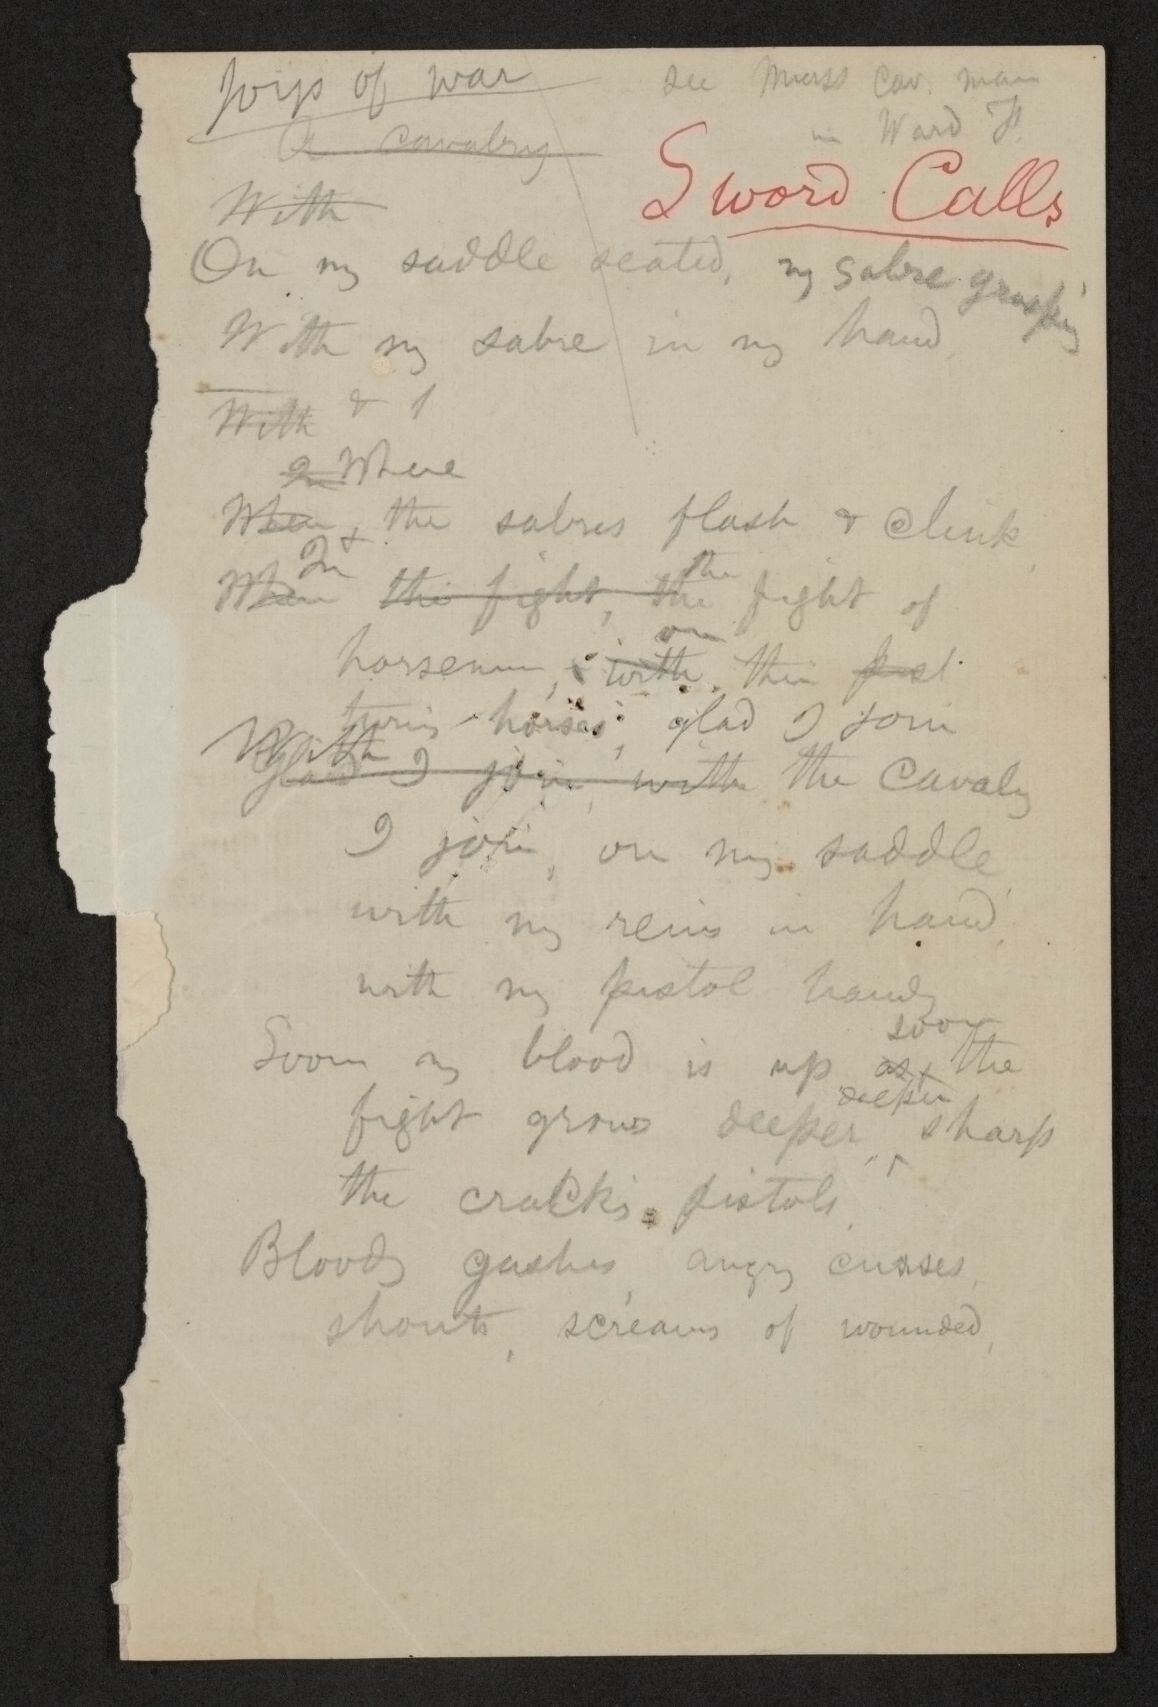 Joys of war
see Mass Cav. man
in Ward
A cavalry
Sword Calls
With
On my saddle seated, my sabre grasping
With my sabre in my hand,
With &
In Where
When, the sabres flash & clink,
In the
When the fight, the fight of
on
horsemen, with their fast
turning horses, glad I join
With
Glad I join, with the cavalry
I join, on my saddle,
with my reins in hand,
with my pistol handy
soon
Soon my blood is up as the
deeper
fight grows deeper, sharp
the cracking pistols,
Bloody gashes, angry cusses,
shouts, screams of wounded,